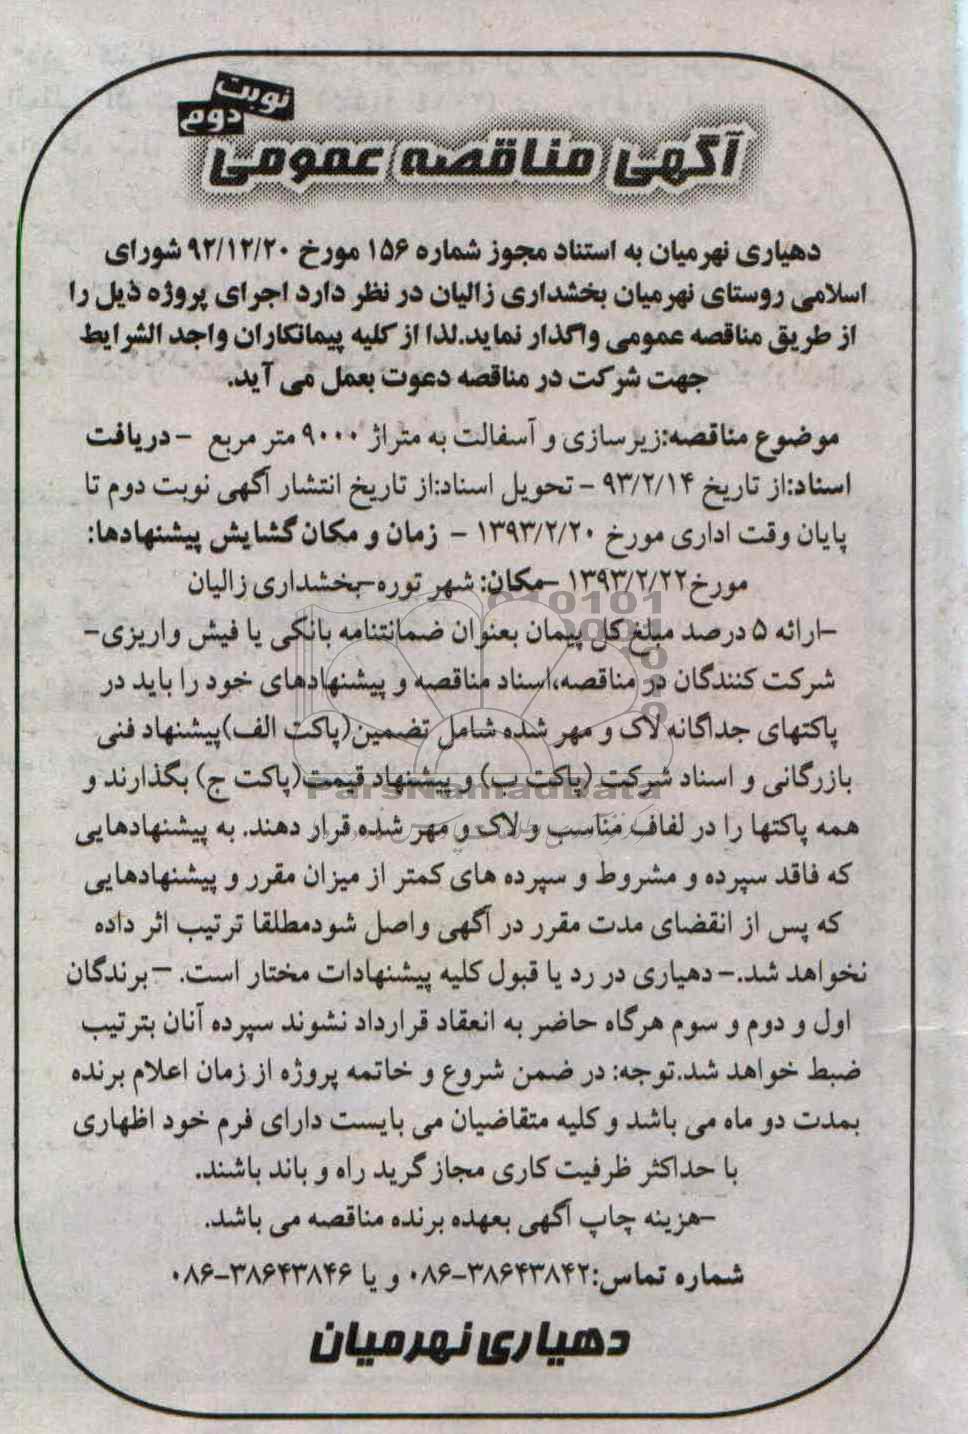 نوبت دوم
آگهی مناقصه عمومی
دهیاری نهرمیان به استناد مجوز شماره ۱۵۶ مورخ ۹۲/۱۲/۲۰ شورای
اسلامی روستای نهرمیان بخشداری زالیان در نظر دارد اجرای پروژه ذیل را
از طریق مناقصه عمومی واگذار نماید.لذا از کلیه پیمانکاران واجد الشرایط
جهت شرکت در مناقصه دعوت بعمل می آید.
موضوع مناقصه:زیرسازی و آسفالت به متراژ ۹۰۰۰ متر مربع - دریافت
اسناد:از تاریخ ۹۳/۲/۱۴ - تحویل اسناد:از تاریخ انتشار آگهی نوبت دوم تا
پایان وقت اداری مورخ ۱۳۹۳/۲/۲۰ - زمان و مکان گشایش پیشنهادها:
مورخ۱۳۹۳/۲/۲۲ -مکان: شهر توره-بخشداری زالیان
-ارائه ۵ درصد مبلغ کل پیمان بعنوان ضمانتنامه بانکی یا فیش واریزی-
شرکت کنندگان در مناقصه،اسناد مناقصه و پیشنهادهای خود را باید در
پاکتهای جداگانه لاک و مهر شده شامل تضمین(پاکت الف)پیشنهاد فنی
بازرگانی و اسناد شرکت (پاکت ب) و پیشنهاد قیمت(پاکت ج) بگذارند و
همه پاکتها را در لفاف مناسب و لاک و مهر شده قرار دهند. به پیشنهادهایی
که فاقد سپرده و مشروط و سپرده های کمتر از میزان مقرر و پیشنهادهایی
که پس از انقضای مدت مقرر در آگهی واصل شودمطلقا ترتیب اثر داده
نخواهد شد.- دهیاری در رد یا قبول کلیه پیشنهادات مختار است. - برندگان
اول و دوم و سوم هرگاه حاضر به انعقاد قرارداد نشوند سپرده آنان بترتیب
ضبط خواهد شد.توجه: در ضمن شروع و خاتمه پروژه از زمان اعلام برنده
بمدت دو ماه می باشد و کلیه متقاضیان می بایست دارای فرم خود اظهاری
با حداکثر ظرفیت کاری مجاز گرید راه و باند باشند.
-هزینه چاپ آگهی بعهده برنده مناقصه می باشد.
شماره تماس:۳۸۶۴۳۸۴۲-۰۸۶ و یا ۳۸۶۴۳۸۴۶-۰۸۶
دهیاری نهرمیان
ParsNamadData